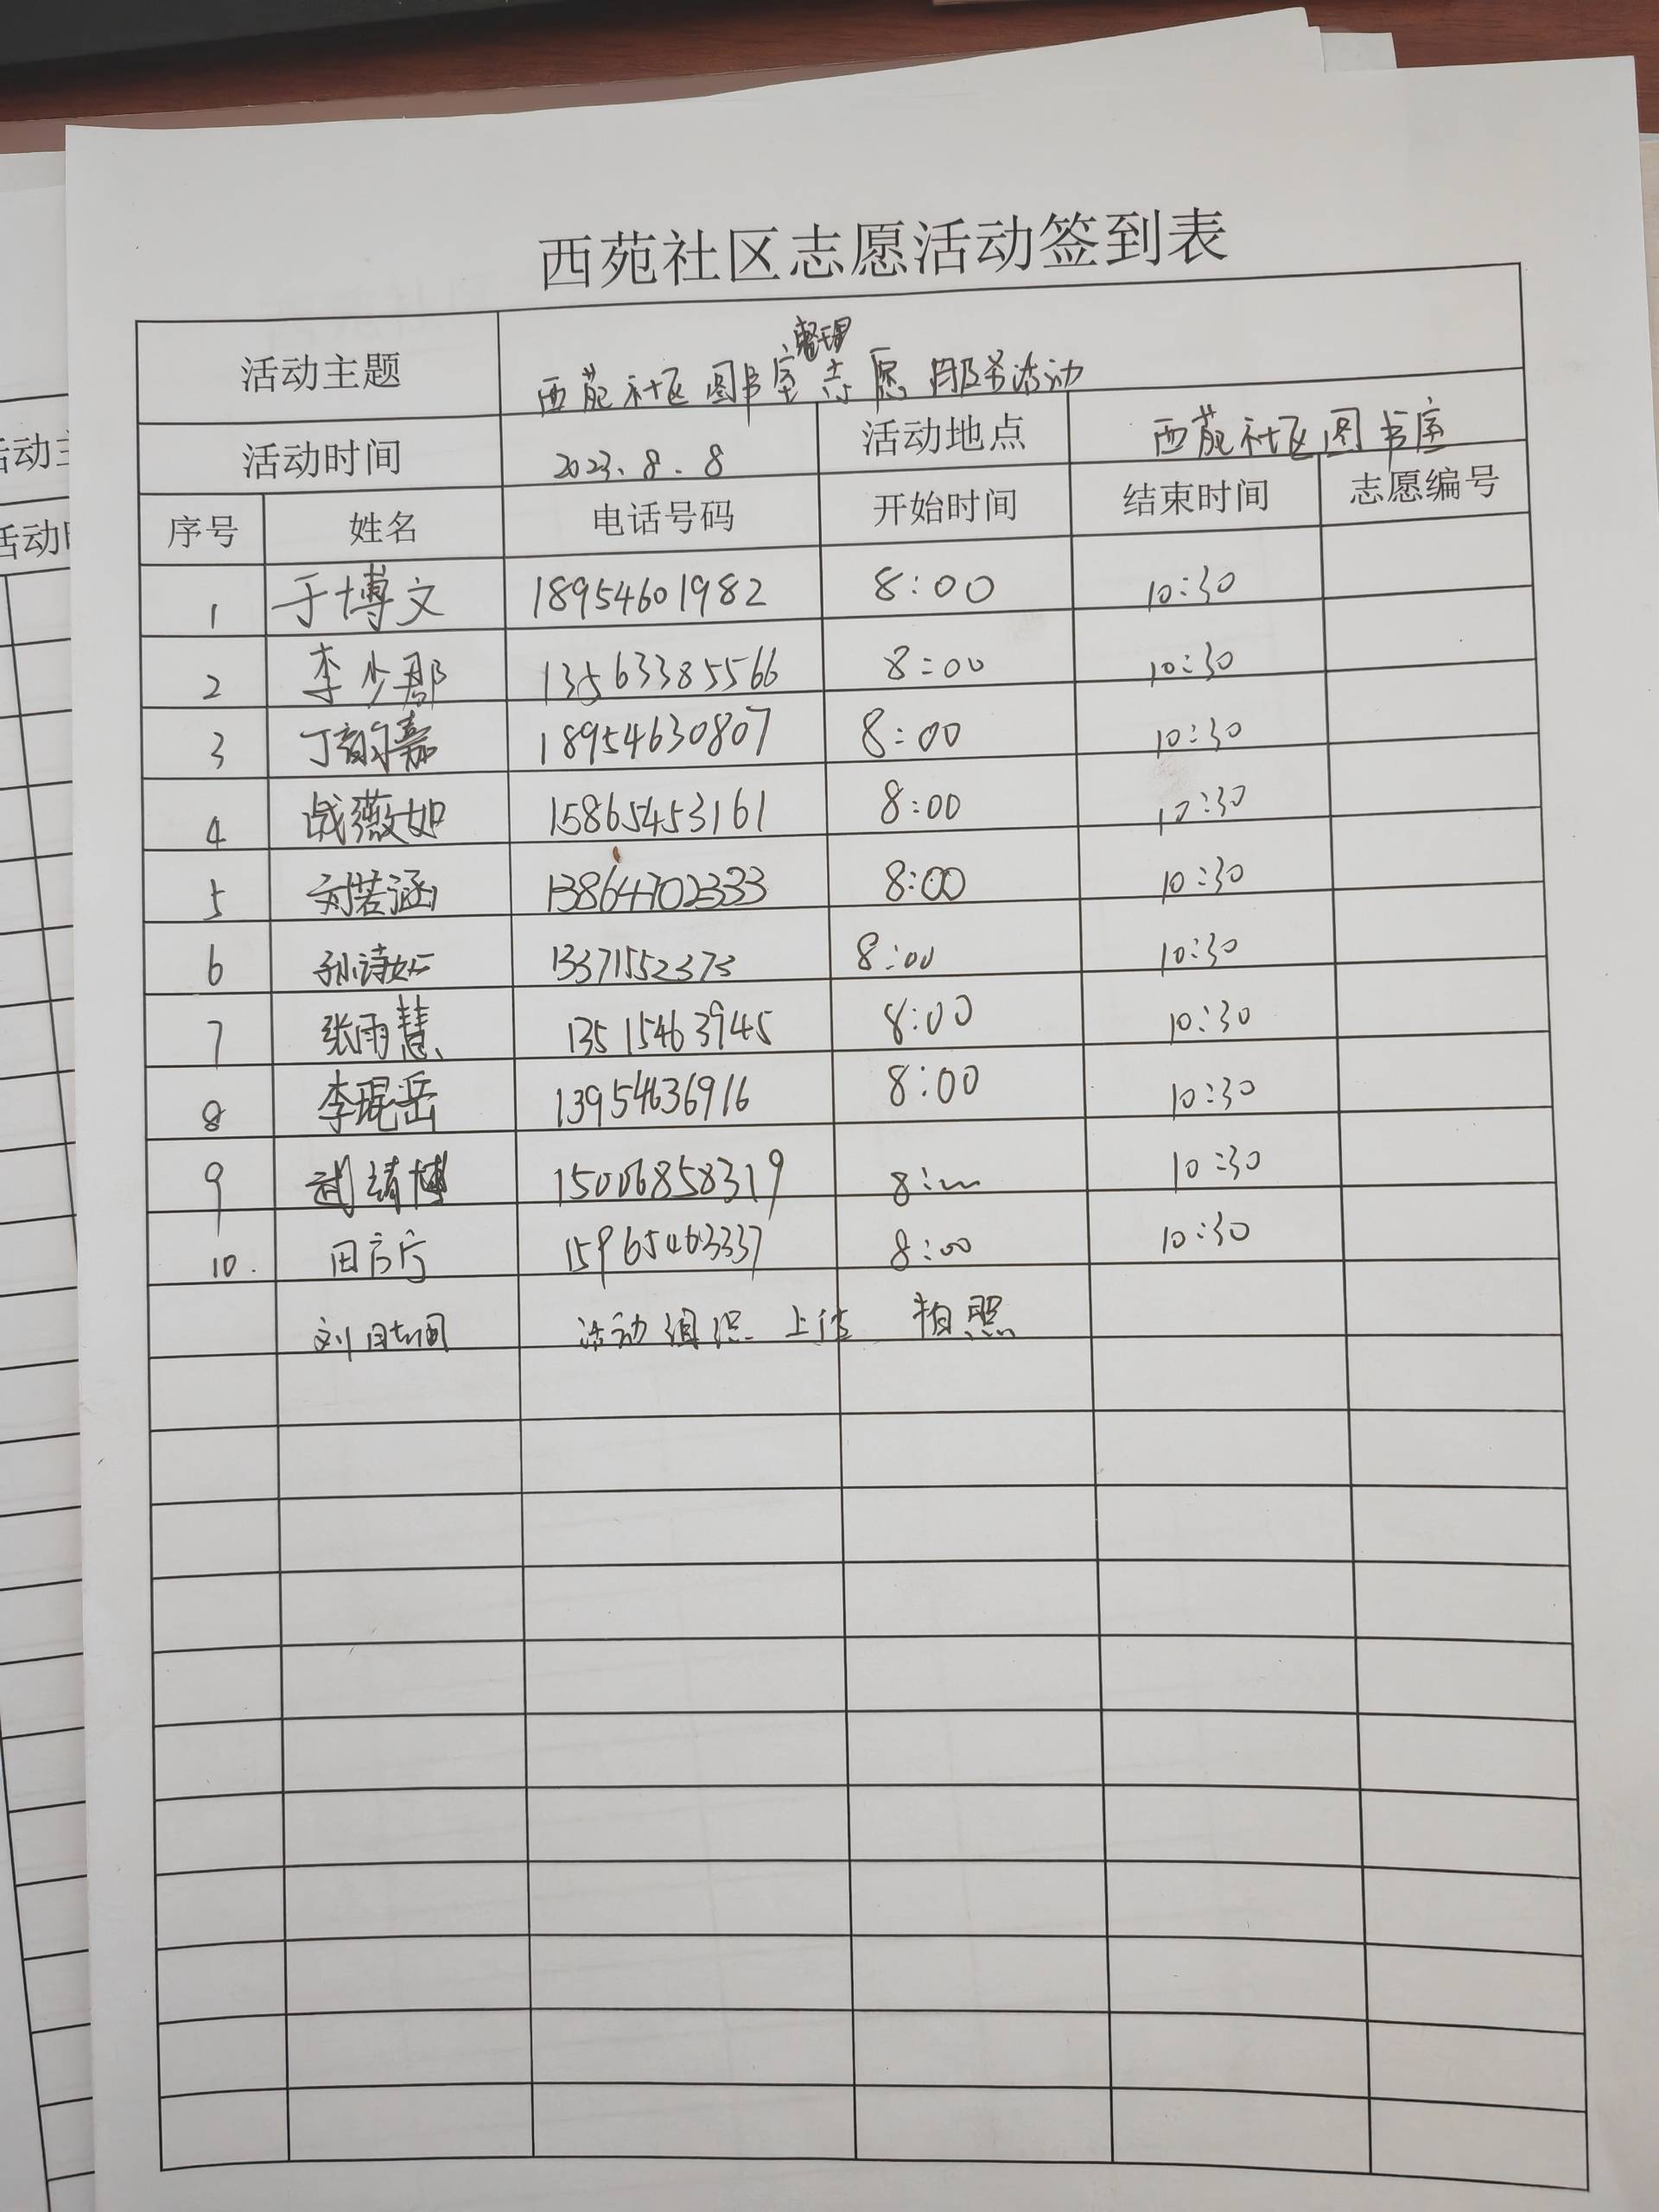 西苑社区志愿活动签到表
活动主题 西苑社区图书室整理志愿服务活动
活动时间 2023.8.8 活动地点 西苑社区图书室
序号 姓名 电话号码 开始时间 结束时间 志愿编号
1 于博文 18954601982 8:00 10:30
2 李少郡 13563385566 8:00 10:30
3 丁韵嘉 18954630807 8:00 10:30
4 战薇如 15865453161 8:00 10:30
5 刘若涵 13864702333 8:00 10:30
6 孙诗妘 13371552373 8:00 10:30
7 张雨慧 13515463945 8:00 10:30
8 李琨岳 13954636916 8:00 10:30
9 武靖博 15006858319 8:00 10:30
10. 田方 15965463337 8:00 10:30
刘 活动组织 上传 拍照
活动主
活动时